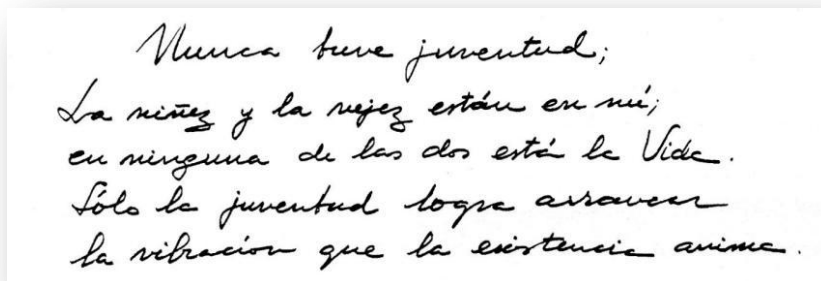 Nunca tuve juventud;
La niñez y la vejez están en mí;
en ninguna de las dos está la Vida.
Sólo la juventud logra arrancar
la vibración que la existencia anima.